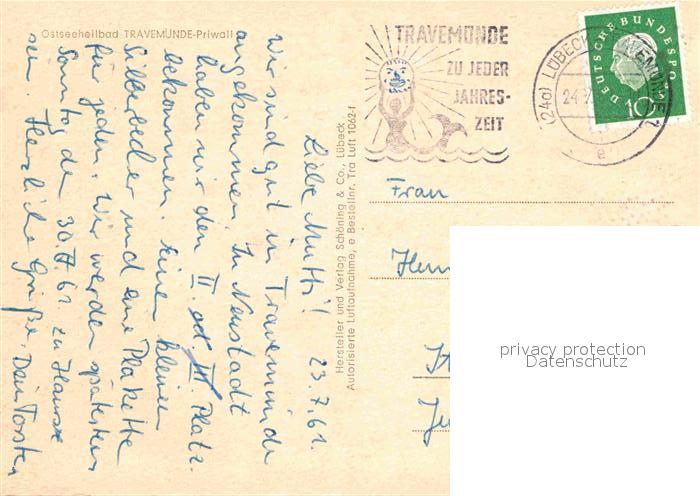 Ostseeheilbad TRAVEMÜNDE-Priwall
Liebe Mutti! 23.7.61.
Wir sind gut in Travemünde
angekommen. In Neustadt
haben wir den II. od. III. Platz
bekommen. Einen kleinen
Silberbecher und eine Plakette
für jeden. Wir werden spätestens
Sonntag den 30.7.61 zu Hause
sein. Herzliche Grüße, Dein Torsten
Hersteller und Verlag Schöning & Co., Lübeck
Autorisierte Luftaufnahme, e Bestellnr. Tra Luft 1062-f
TRAVEMÜNDE
ZU JEDER
JAHRES-
ZEIT
(24a) LÜBECK-TRAVEMÜNDE 1
24.
e
DEUTSCHE BUNDESPOST
10
Frau
privacy protection
Datenschutz